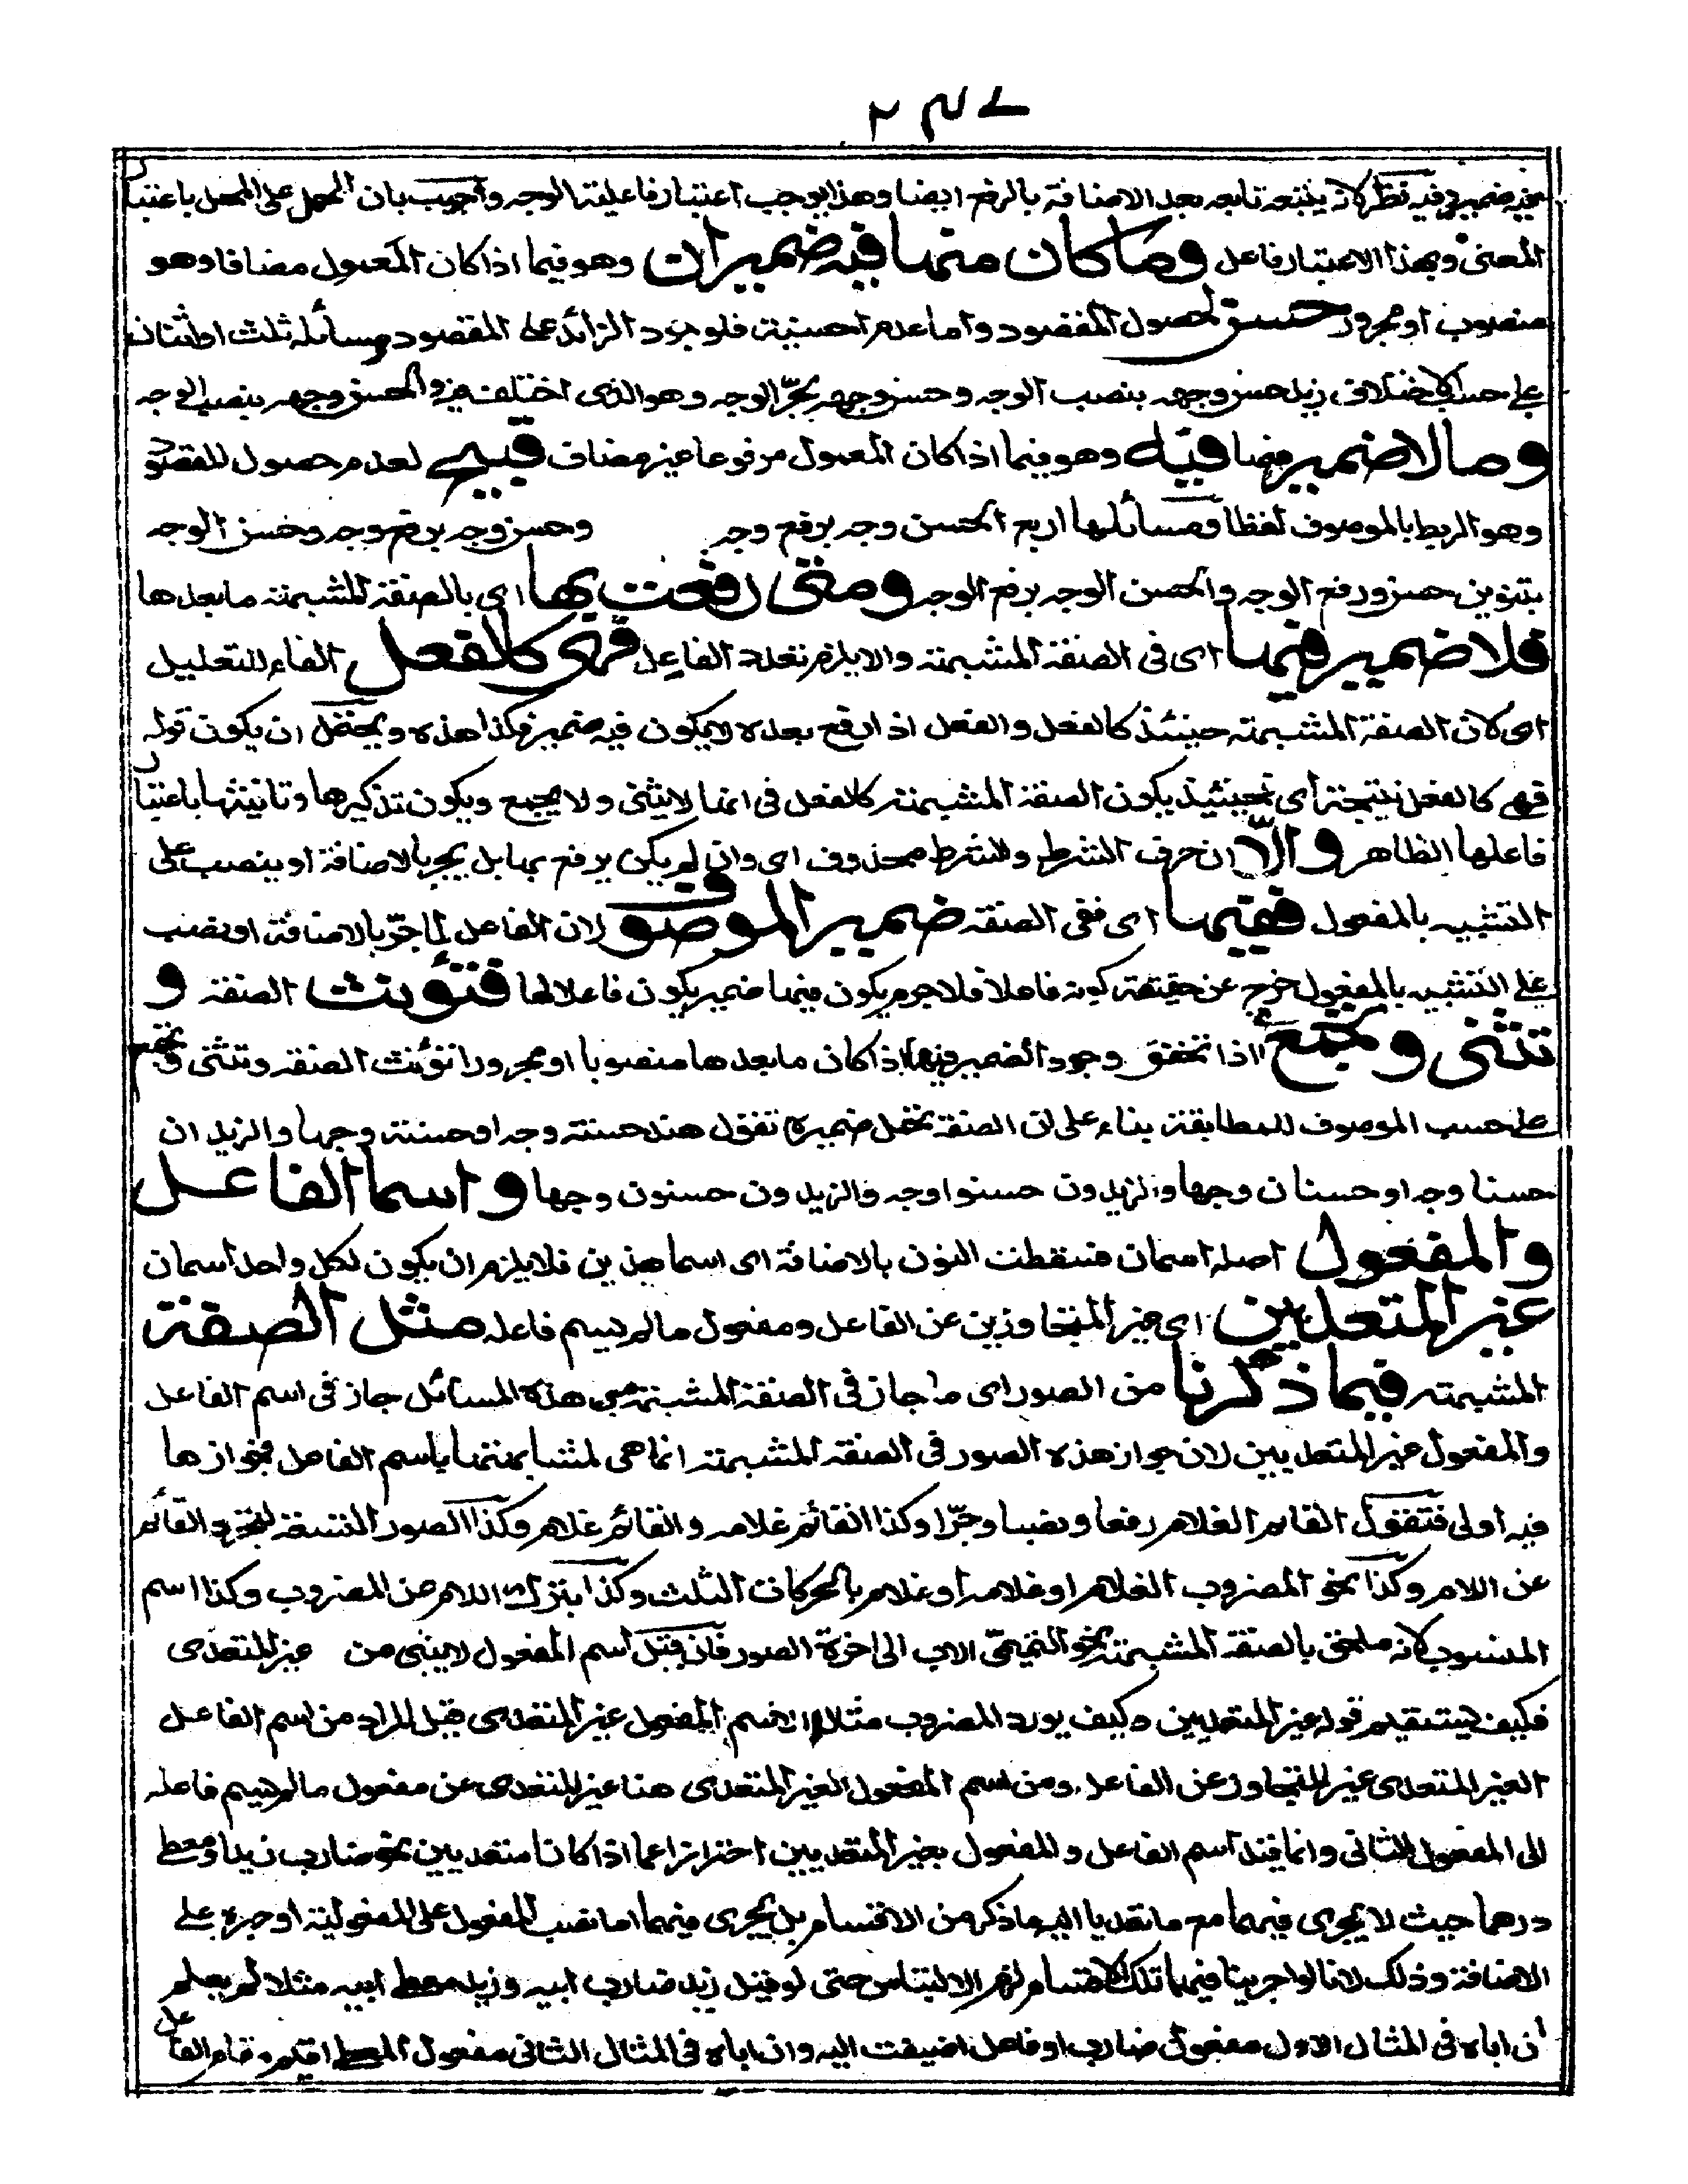 ٢٣٧
غير ضمير وفيه نظر لانه يتبعه تابعه بعد الاضافة بالرفع ايضا وهذا يوجب اعتبار فاعلية الوجه واجيب بان الحمل على المحل باعتبار
المعنى وبهذا الاعتبار فاعل وما كان منها فيه ضميران وهو فيما اذا كان المعمول مضافا وهو
منصوب او مجرور حسن لحصول المقصود واما عدم احسنية فلوجود الزائد على المقصود ومسائله ثلث او اثنتان
على حسب الاختلاف زيد حسن وجهه بنصب الوجه وحسن وجهه بجرّ الوجه وهو الذى اختلف فيه والحسن وجهه بنصب الوجه
وما لا ضمير منها فيه وهو فيما اذا كان المعمول مرفوعا غير مضاف قبيح لعدم حصول المقصود
وهو الربط بالموصوف لفظا ومسائلها اربع الحسن وجه برفع وجه وحسن وجه برفع وجه وحسن الوجه
بتنوين حسن ورفع الوجه والحسن الوجه برفع الوجه ومتى رفعت بها اى بالصفة المشبهة ما بعدها
فلا ضمير فيها اى فى الصفة المشبهة والا يلزم تعدد الفاعل فهى كالفعل الفاء للتعليل
اى لان الصفة المشبهة حينئذ كالفعل والفعل اذا رفع بعده لا يكون فيه ضمير فكذا هذه ويحتمل ان يكون قوله
فهى كالفعل نتيجة اى فحينئذ يكون الصفة المشبهة كالفعل فى انها لا يثنى ولا يجمع ويكون تذكيرها وتانيثها باعتبار
فاعلها الظاهر والّا ان حرف الشرط والشرط محذوف اى وان لم يكن يرفع بها بل يجر بالاضافة او ينصب على
التشبيه بالمفعول ففيها اى ففى الصفة ضمير الموصوف لان الفاعل لما جرّ بالاضافة او نصب
على التشبيه بالمفعول خرج عن حقيقة كونه فاعلا فلا جرم يكون فيها ضمير يكون فاعلا لها فتؤنث الصفة و
تثنى وتجمع اذا تحقق وجود الضمير فيها اذا كان ما بعدها منصوبا او مجرورا تؤنث الصفة وتثنى وتجمع
على حسب الموصوف للمطابقة بناء على ان الصفة تحمل ضميره تقول هند حسنة وجه او حسنة وجها والزيدان
حسنا وجه او حسنان وجها والزيدون حسنوا وجه والزيدون حسنون وجها واسما الفاعل
والمفعول اصله اسمان فسقطت النون بالاضافة اى اسما هذين فلا يلزم ان يكون لكل واحد اسمان
غير المتعديين اى غير المتجاوزين عن الفاعل ومفعول ما لم يسم فاعله مثل الصفة
المشبهة فيما ذكرنا من الصور اى ما جاز فى الصفة المشبهة من هذه المسائل جاز فى اسم الفاعل
والمفعول غير المتعديين لان جواز هذه الصور فى الصفة المشبهة انما هى لمشابهتها باسم الفاعل فجوازها
فيه اولى فتقول القائم الغلام رفعا ونصبا وجرّا وكذا القائم غلامه والقائم غلام وكذا الصور التسعة لتجرد القائم
عن اللام وكذا نحو المضروب الغلام او غلامه او غلام بالحركات الثلث وكذا بترك اللام من المضروب وكذا اسم
المنسوب لانه ملحق بالصفة المشبهة نحو التميمى الاب الى اخرة الصور فان قيل اسم المفعول لا يبنى من غير المتعدى
فكيف يستقيم قوله غير المتعديين وكيف يورد المضروب مثالا لاسم المفعول غير المتعدى قيل المراد من اسم الفاعل
الغير المتعدى غير المتجاوز عن الفاعل ومن اسم المفعول الغير المتعدى هنا غير المتعدى عن مفعول ما لم يسم فاعله
الى المفعول الثانى وانما قيد اسم الفاعل والمفعول بغير المتعديين احترازا عما اذا كانا متعديين نحو ضارب زيدا ومعطى
درهما حيث لا يجرى فيهما مع ما تعديا اليه ما ذكر من الاقسام بل يجرى فيهما اما نصب المفعول على المفعولية او جره على
الاضافة وذلك لانا لو اجرينا فيهما تلك الاقسام لزم الالتباس حتى لو قيل زيد ضارب ابيه وزيد معطى ابيه مثلا لم يعلم
ان اباه فى المثال الاول مفعول ضارب او فاعل اضيفت اليه وان اباه فى المثال الثانى مفعول المعطى اقيم مقام الفاعل